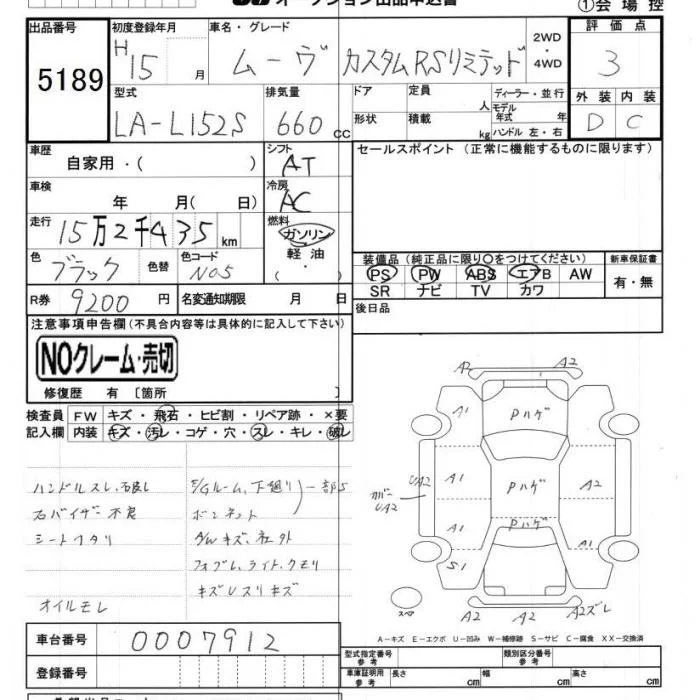 オークション出品申込書
①会場控
出品番号 5189
初度登録年月 H15 月
車名・グレード ムーヴ カスタムRSリミテッド
2WD・4WD
評価点 3
型式 LA-L152S
排気量 660 cc
ドア 形状
定員 人
積載 kg
ディーラー・並行
モデル年式 年
ハンドル 左・右
外装 D
内装 C
車歴 自家用・( )
シフト AT
セールスポイント(正常に機能するものに限ります)
車検 年 月( 日)
冷房 AC
走行 15万2千435km
燃料 ガソリン 軽油・( )
色 ブラック 色替
色コード N05
装備品(純正品に限り〇をつけてください)
PS PW ABS エアB AW
SR ナビ TV カワ
新車保証書 有・無
R券 9200円
名変通知期限 月 日
後日品
注意事項申告欄(不具合内容等は具体的に記入して下さい)
NOクレーム・売切
修復歴 有 [箇所 ]
検査員記入欄
FW キズ・飛石・ヒビ割・リペア跡・×要
内装 キズ・汚レ・コゲ・穴・スレ・キレ・破レ
ハンドルスレ、
バイザー不良
シートヘタリ
オイルモレ
E/Gルーム、下廻り 一部S
ボンネット
キズ、
フォグム、ライト、クモリ
キズUスリキズ
A2 A2
A1 Pハゲ
UA2 A1 Pハゲ A2
カバーUA2
A1 Pハゲ A1
S1
スペア
A2 A2 A2ズレ
A−キズ E−エクボ U−凹み W−補修跡 S−サビ C−腐食 XX−交換済
車台番号 0007912
登録番号
型式指定番号 参考
類別区分番号 参考
車庫証明記入欄 参考 長さ cm 幅 cm 高さ cm